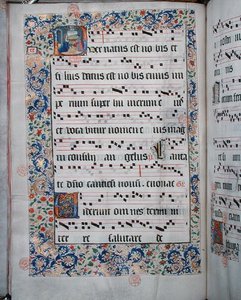 Puer natus est no bis et
fi lius datus est no bis cuius im
pe rium super hu merum e ius
et voca bitur nomen e ius mag
ni consilii an gelus Canta
te dño canticū nouū. euouae
Uiderunt om nes termini
ter re salutare